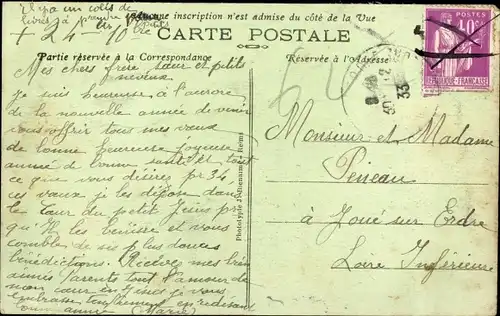 Il y a un colis de
livres à prendre
+ 24 - 10
Aucune inscription n'est admise du côté de la Vue
CARTE POSTALE
Partie réservée à la Correspondance
Réservée à l'Adresse
POSTES
RÉPUBLIQUE FRANÇAISE
33
Mes chers frère sœur et petits
neveux
Je suis heureuse à l'aurore
de la nouvelle année de venir
vous offrir tous mes vœux
de bonne heureuse joyeuse
année de bonne santé et tout
ce que vous désirez pr 34,
ces vœux je les dépose dans
le Cœur du petit Jésus pr
qu'Il les bénisse et vous
comble de ses plus douces
bénédictions. Recevez mes bien
aimés Parents tout l'amour de
mon cœur en Jésus je vous
embrasse tous en redisant
bonne année (Marie)
Phototypie J. Bienaimé, Reims
Monsieur et Madame
Peneau
à Joué sur Erdre
Loire Inférieure